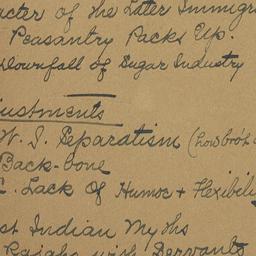 acter of the Later Immigr
Peasantry Packs Up.
Downfall of Sugar Industry
justments
W. I. Separatism (how both
Back-bone
C. Lack of Humor + Flexibili
st Indian Myths
Rajahs with Servants